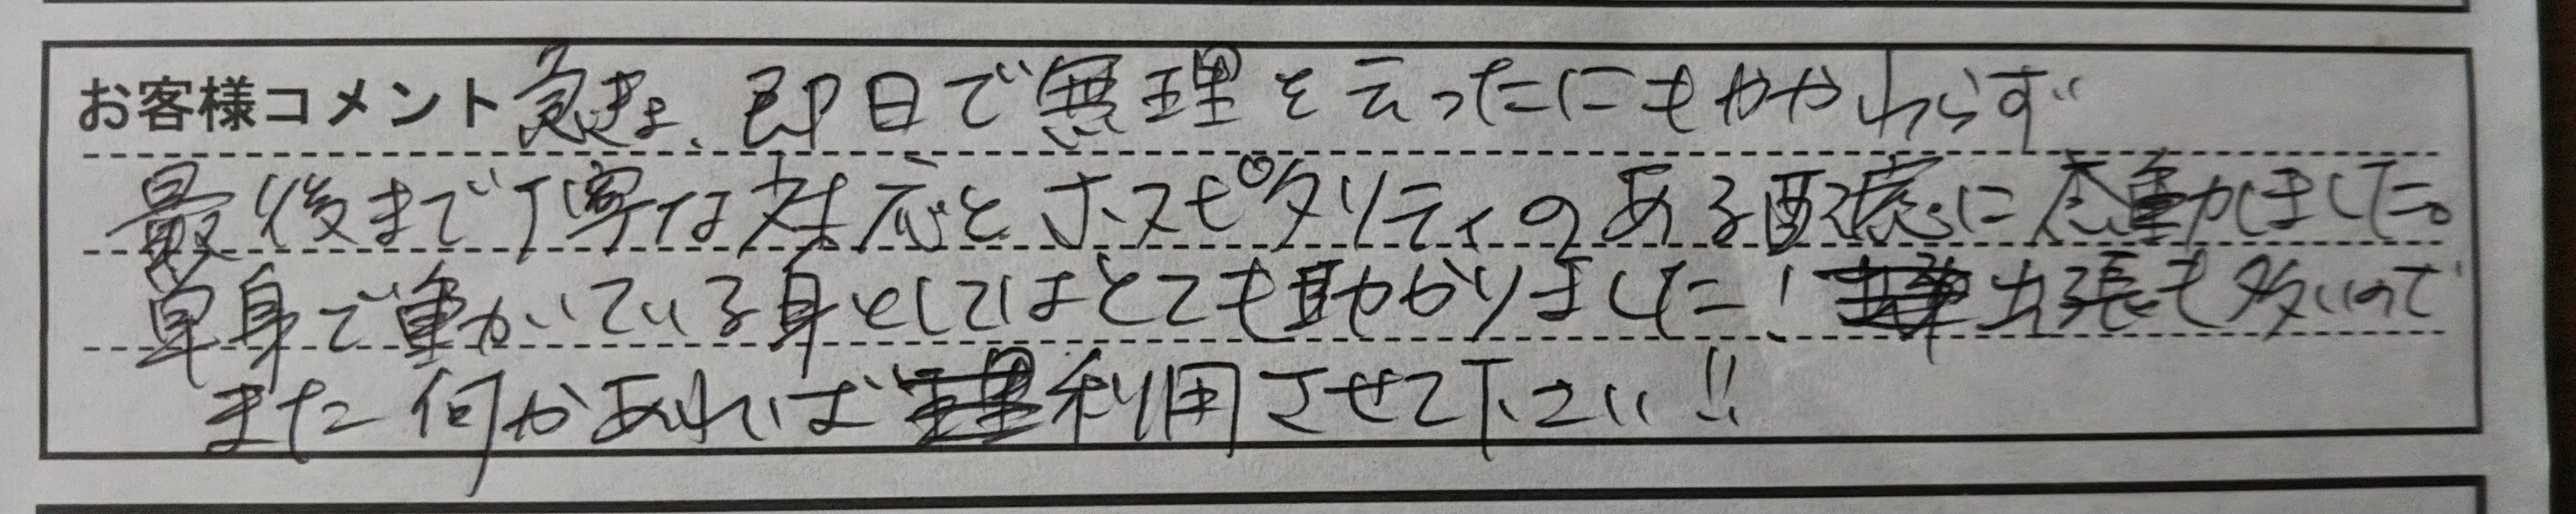 お客様コメント 急きょ、即日で無理を言ったにもかかわらず
最後まで丁寧な対応とホスピタリティのある配慮に感動しました。
単身で動いている身としてはとても助かりました！出張も多いので
また何かあれば利用させて下さい!!